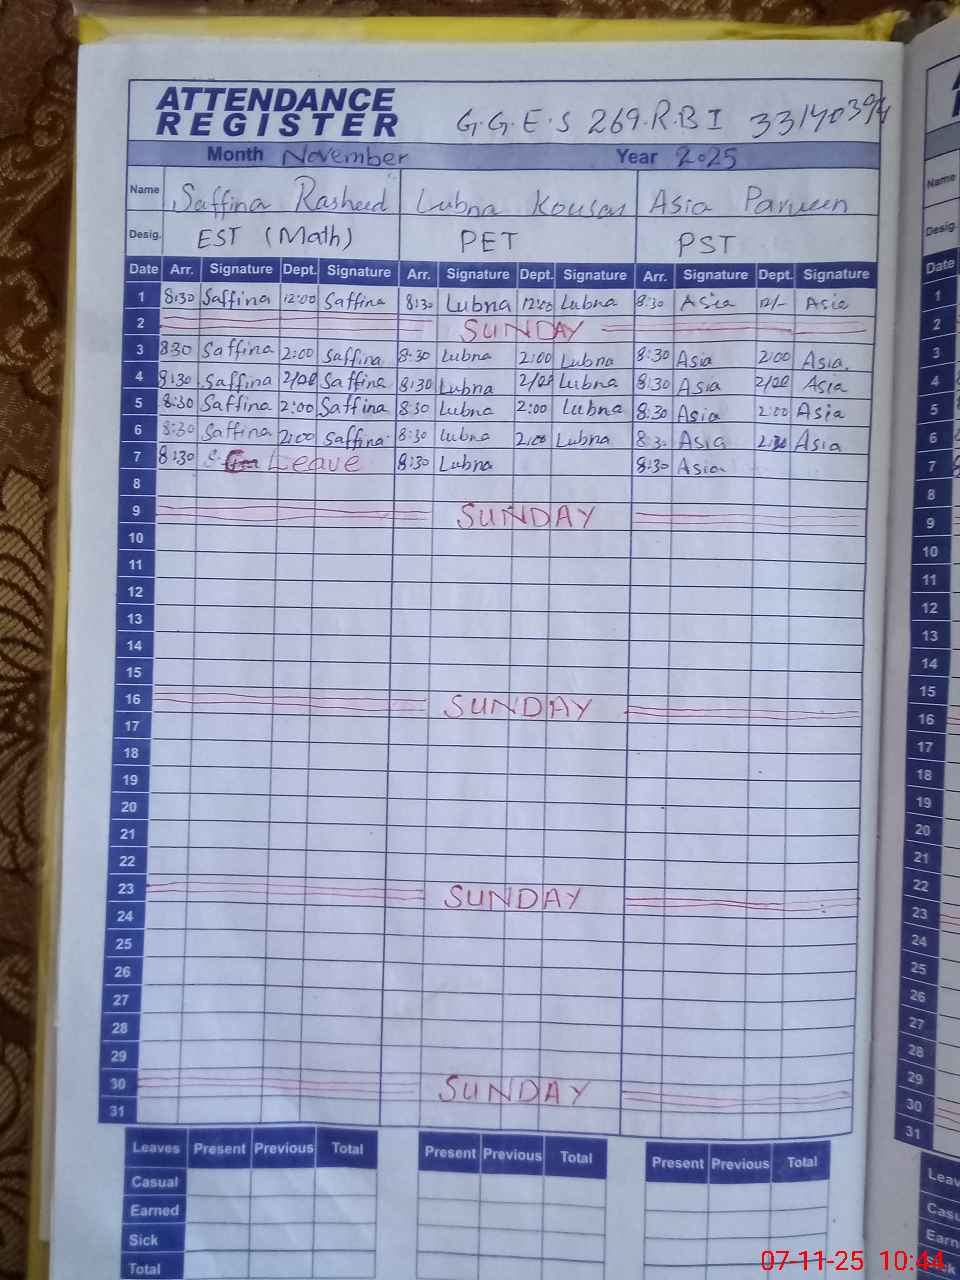 ATTENDANCE
REGISTER
G.G.E.S 269.R.B I 33140394
Month November Year 2025
Name Saffina Rasheed Lubna Kousar Asia Parveen
Desig. EST (Math) PET PST
Date Arr. Signature Dept. Signature Arr. Signature Dept. Signature Arr. Signature Dept. Signature
1 8:30 Saffina 12:00 Saffina 8:30 Lubna 12:00 Lubna 8:30 Asia 12/- Asia
2 SUNDAY
3 830 Saffina 2:00 Saffina 8:30 Lubna 2:00 Lubna 8:30 Asia 2:00 Asia
4 8:30 Saffina 2/00 Saffina 8:30 Lubna 2/00 Lubna 8:30 Asia 2/00 Asia
5 8:30 Saffina 2:00 Saffina 8:30 Lubna 2:00 Lubna 8:30 Asia 2:00 Asia
6 8:30 Saffina 2:00 Saffina 8:30 Lubna 2:00 Lubna 8:30 Asia Asia
7 8:30 Leave 8:30 Lubna 8:30 Asia
8
9 SUNDAY
10
11
12
13
14
15
16 SUNDAY
17
18
19
20
21
22
23 SUNDAY
24
25
26
27
28
29
30 SUNDAY
31
Leaves Present Previous Total Present Previous Total Present Previous Total
Casual
Earned
Sick
Total
Name
Desig.
Date
1
2
3
4
5
6
7
8
9
10
11
12
13
14
15
16
17
18
19
20
21
22
23
24
25
26
27
28
29
30
31
07-11-25 10:44